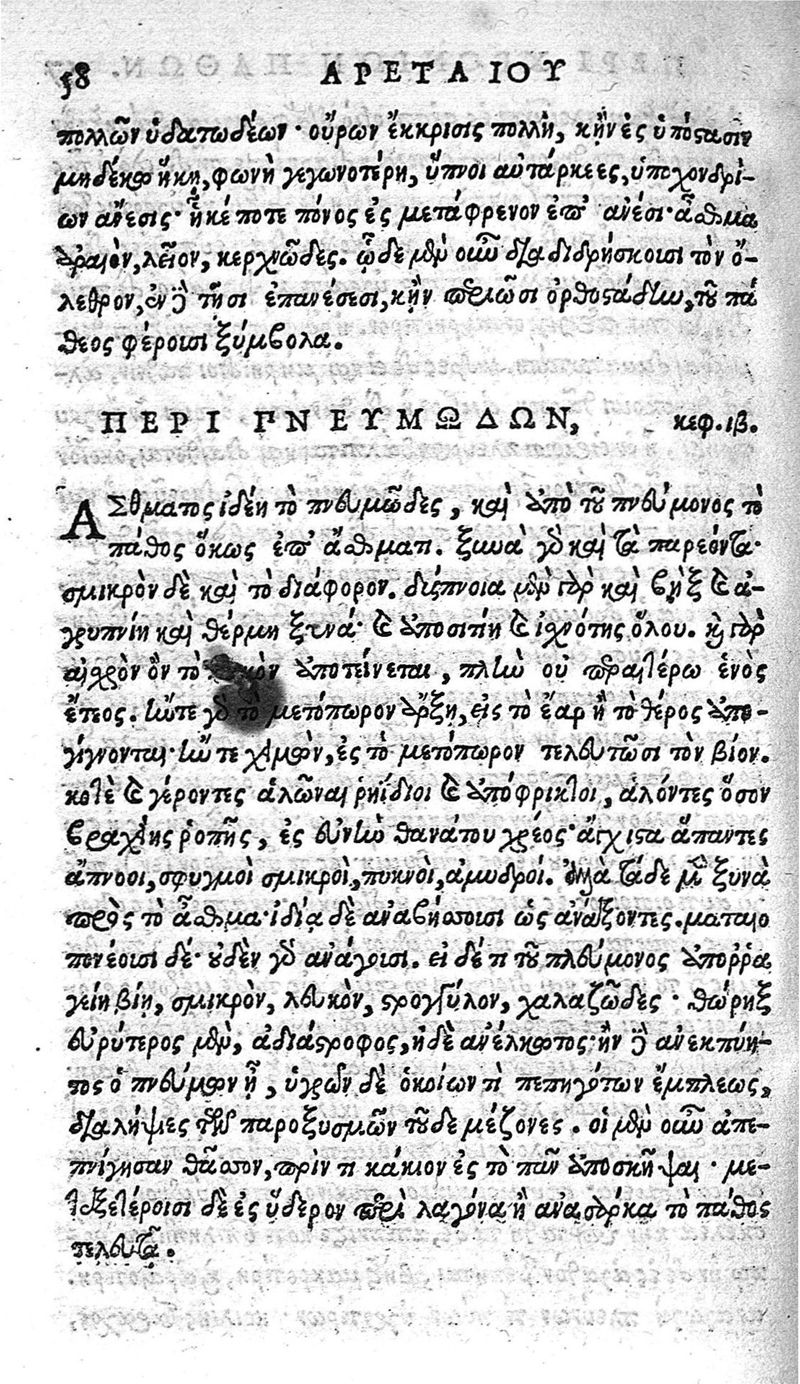 58 ΑΡΕΤΑΙΟΥ
πολλῶν ὑδατωδέων· οὔρων ἔκκρισις πολλὴ, κἢν ἐς ὑπόστασιν
μηδὲν ἥκῃ, φωνὴ γεγωνοτέρη, ὕπνοι αὐτάρκεες, ὑποχονδρί-
ων ἄνεσις· ἧκέ ποτε πόνος ἐς μετάφρενον ἐπ' ἀνέσι· ἆσθμα
ἀραιὸν, λεῖον, κερχνῶδες. ὧδε μὲν οὖν διαδιδρήσκουσι τὸν ὄ-
λεθρον, ἐν δὲ τῇσι ἐπανέσεσι, κἢν περιίωσι ὀρθοστάδην, τοῦ πά
θεος φέρουσι ξύμβολα.
ΠΕΡΙ ΠΝΕΥΜΩΔΩΝ, κεφ. ιβ.
ΑΣθματος ἰδέη τὸ πνευμῶδες, καὶ ἀπὸ τοῦ πνεύμονος τὸ
πάθος ὅκως ἐπ' ἄσθματι. ξυνὰ γὰρ καὶ τὰ παρεόντα·
σμικρὸν δὲ καὶ τὸ διάφορον. δύσπνοια μὲν γὰρ καὶ βὴξ καὶ ἀ-
γρυπνίη καὶ θέρμη ξυνά· καὶ ἀποσιτίη καὶ ἰχνότης ὅλου. καὶ γὰρ
ὂν τὸ ἀποτείνεται, πλὴν οὐ περαιτέρω ἑνὸς
ἔτεος. ἢν τε γὰρ τὸ μετόπωρον ἄρξῃ, εἰς τὸ ἔαρ ἢ τὸ θέρος ἀπο-
γίγνονται· ἢν τε χειμὼν, ἐς τὸ μετόπωρον τελευτῶσι τὸν βίον.
κοτὲ καὶ γέροντες ἁλῶναι ῥηίδιοι καὶ ὑπόφρικτοι, ἁλόντες ὅσον
βραχίης ῥοπῆς, ἐς εὐνὴν θανάτου χρέος· ἄγχιστα ἅπαντες
ἄπνοοι, σφυγμοὶ σμικροὶ, πυκνοὶ, ἀμυδροί. ἀλλὰ τάδε μὲν ξυνὰ
πρὸς τὸ ἆσθμα· ἰδίᾳ δὲ ἀναβήσσουσι ὡς ἀνάξοντες. ματαιο
πονέουσι δέ· οὐδὲν γὰρ ἀνάγουσι. εἰ δέ τι τοῦ πλεύμονος ἀπορρα
γείη βίῃ, σμικρὸν, λευκὸν, στρογγύλον, χαλαζῶδες· θώρηξ
εὐρύτερος μὲν, ἀδιάστροφος, ἠδὲ ἀνέλκωτος· ἢν δὲ ἀνεκπύη-
τος ὁ πνεύμων ᾖ, ὑγρῶν δὲ ὁκοίων τι πεπηγότων ἔμπλεως,
διαλήψιες τῶν παροξυσμῶν τοῦδε μέζονες. οἱ μὲν οὖν ἀπε-
πνίγησαν θᾶσσον, πρίν τι κάκιον ἐς τὸ πᾶν ἀποσκῆψαι· με-
τεξετέροισι δὲ ἐς ὕδερον περὶ λαγόνα ἢ ἀνασάρκα τὸ πάθος
τελευτᾷ.